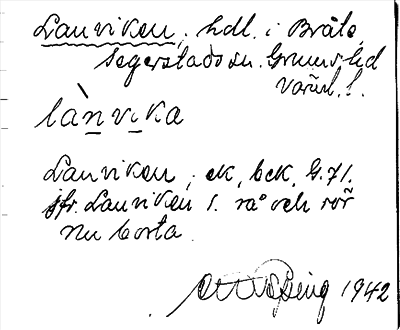 Lanviken, hdl. i Bråte,
Segerstads sn. Grums hd
Värml. l.
lànvika
Lanviken, ek, bek, G.71.
jfr. Lanviken s. rå och rör
nu borta.
1942